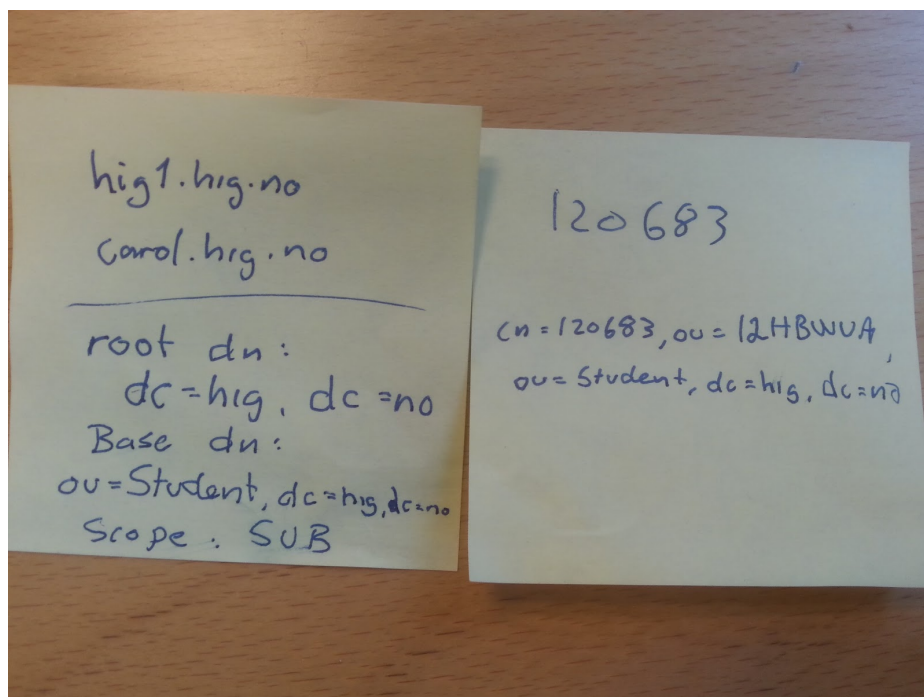 hig1.hig.no
carol.hig.no
root dn:
dc=hig, dc=no
Base dn:
ou=Student, dc=hig, dc=no
Scope: SUB
120683
cn=120683, ou=12HBWUA,
ou=Student, dc=hig, dc=no